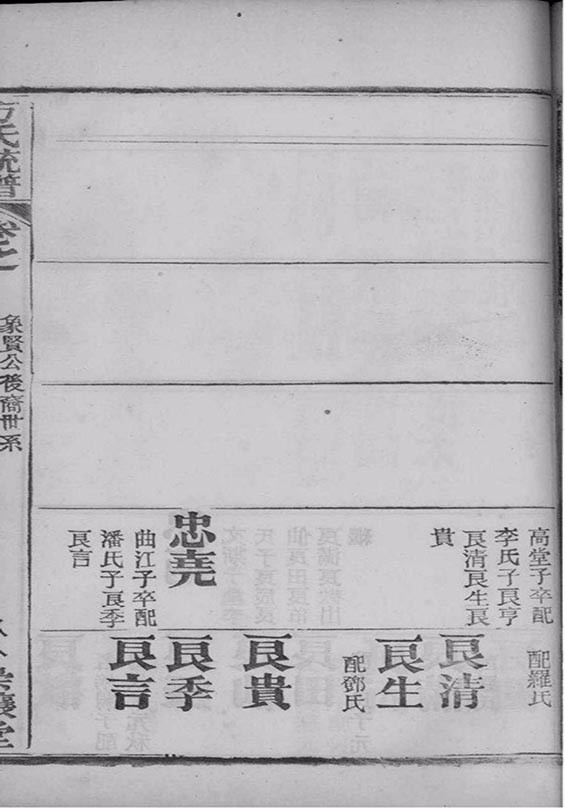 高堂子卒配
李氏子良亨
良清良生良
貴
忠堯
曲江子卒配
潘氏子良季
良言
配羅氏
良清
良生
配鄧氏
良貴
良季
良言
方氏統譜
卷之一
象賢公後裔世系